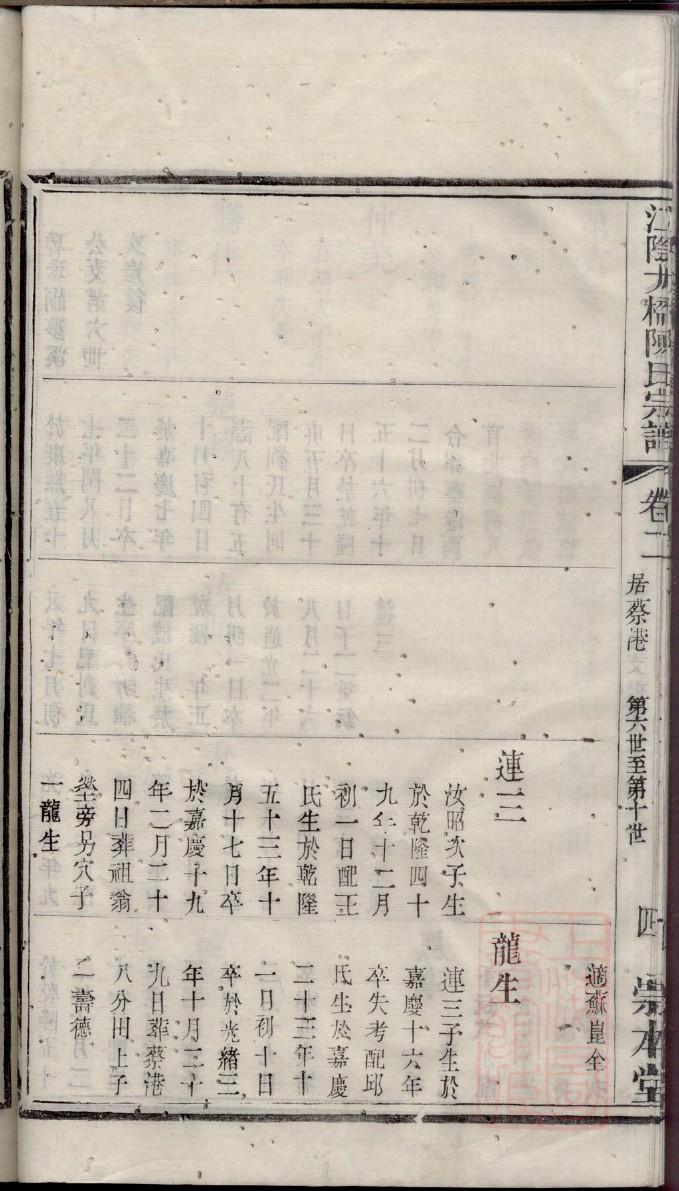 江陰
橋陳氏宗譜
卷二
居蔡港
第六世至第十世
崇本堂
連三
汝昭次子生
於乾隆四十
九年十二月
初一日配王
氏生於乾隆
五十三年十
月十七日卒
於嘉慶十九
年二月二十
四日葬祖翁
塋旁另穴子
一龍生
適蘇崑全
龍生
連三子生於
嘉慶十六年
卒失考配邱
氏生於嘉慶
二十三年十
二月初十日
卒於光緒三
年十月二十
九日葬蔡港
八分田上子
二壽德